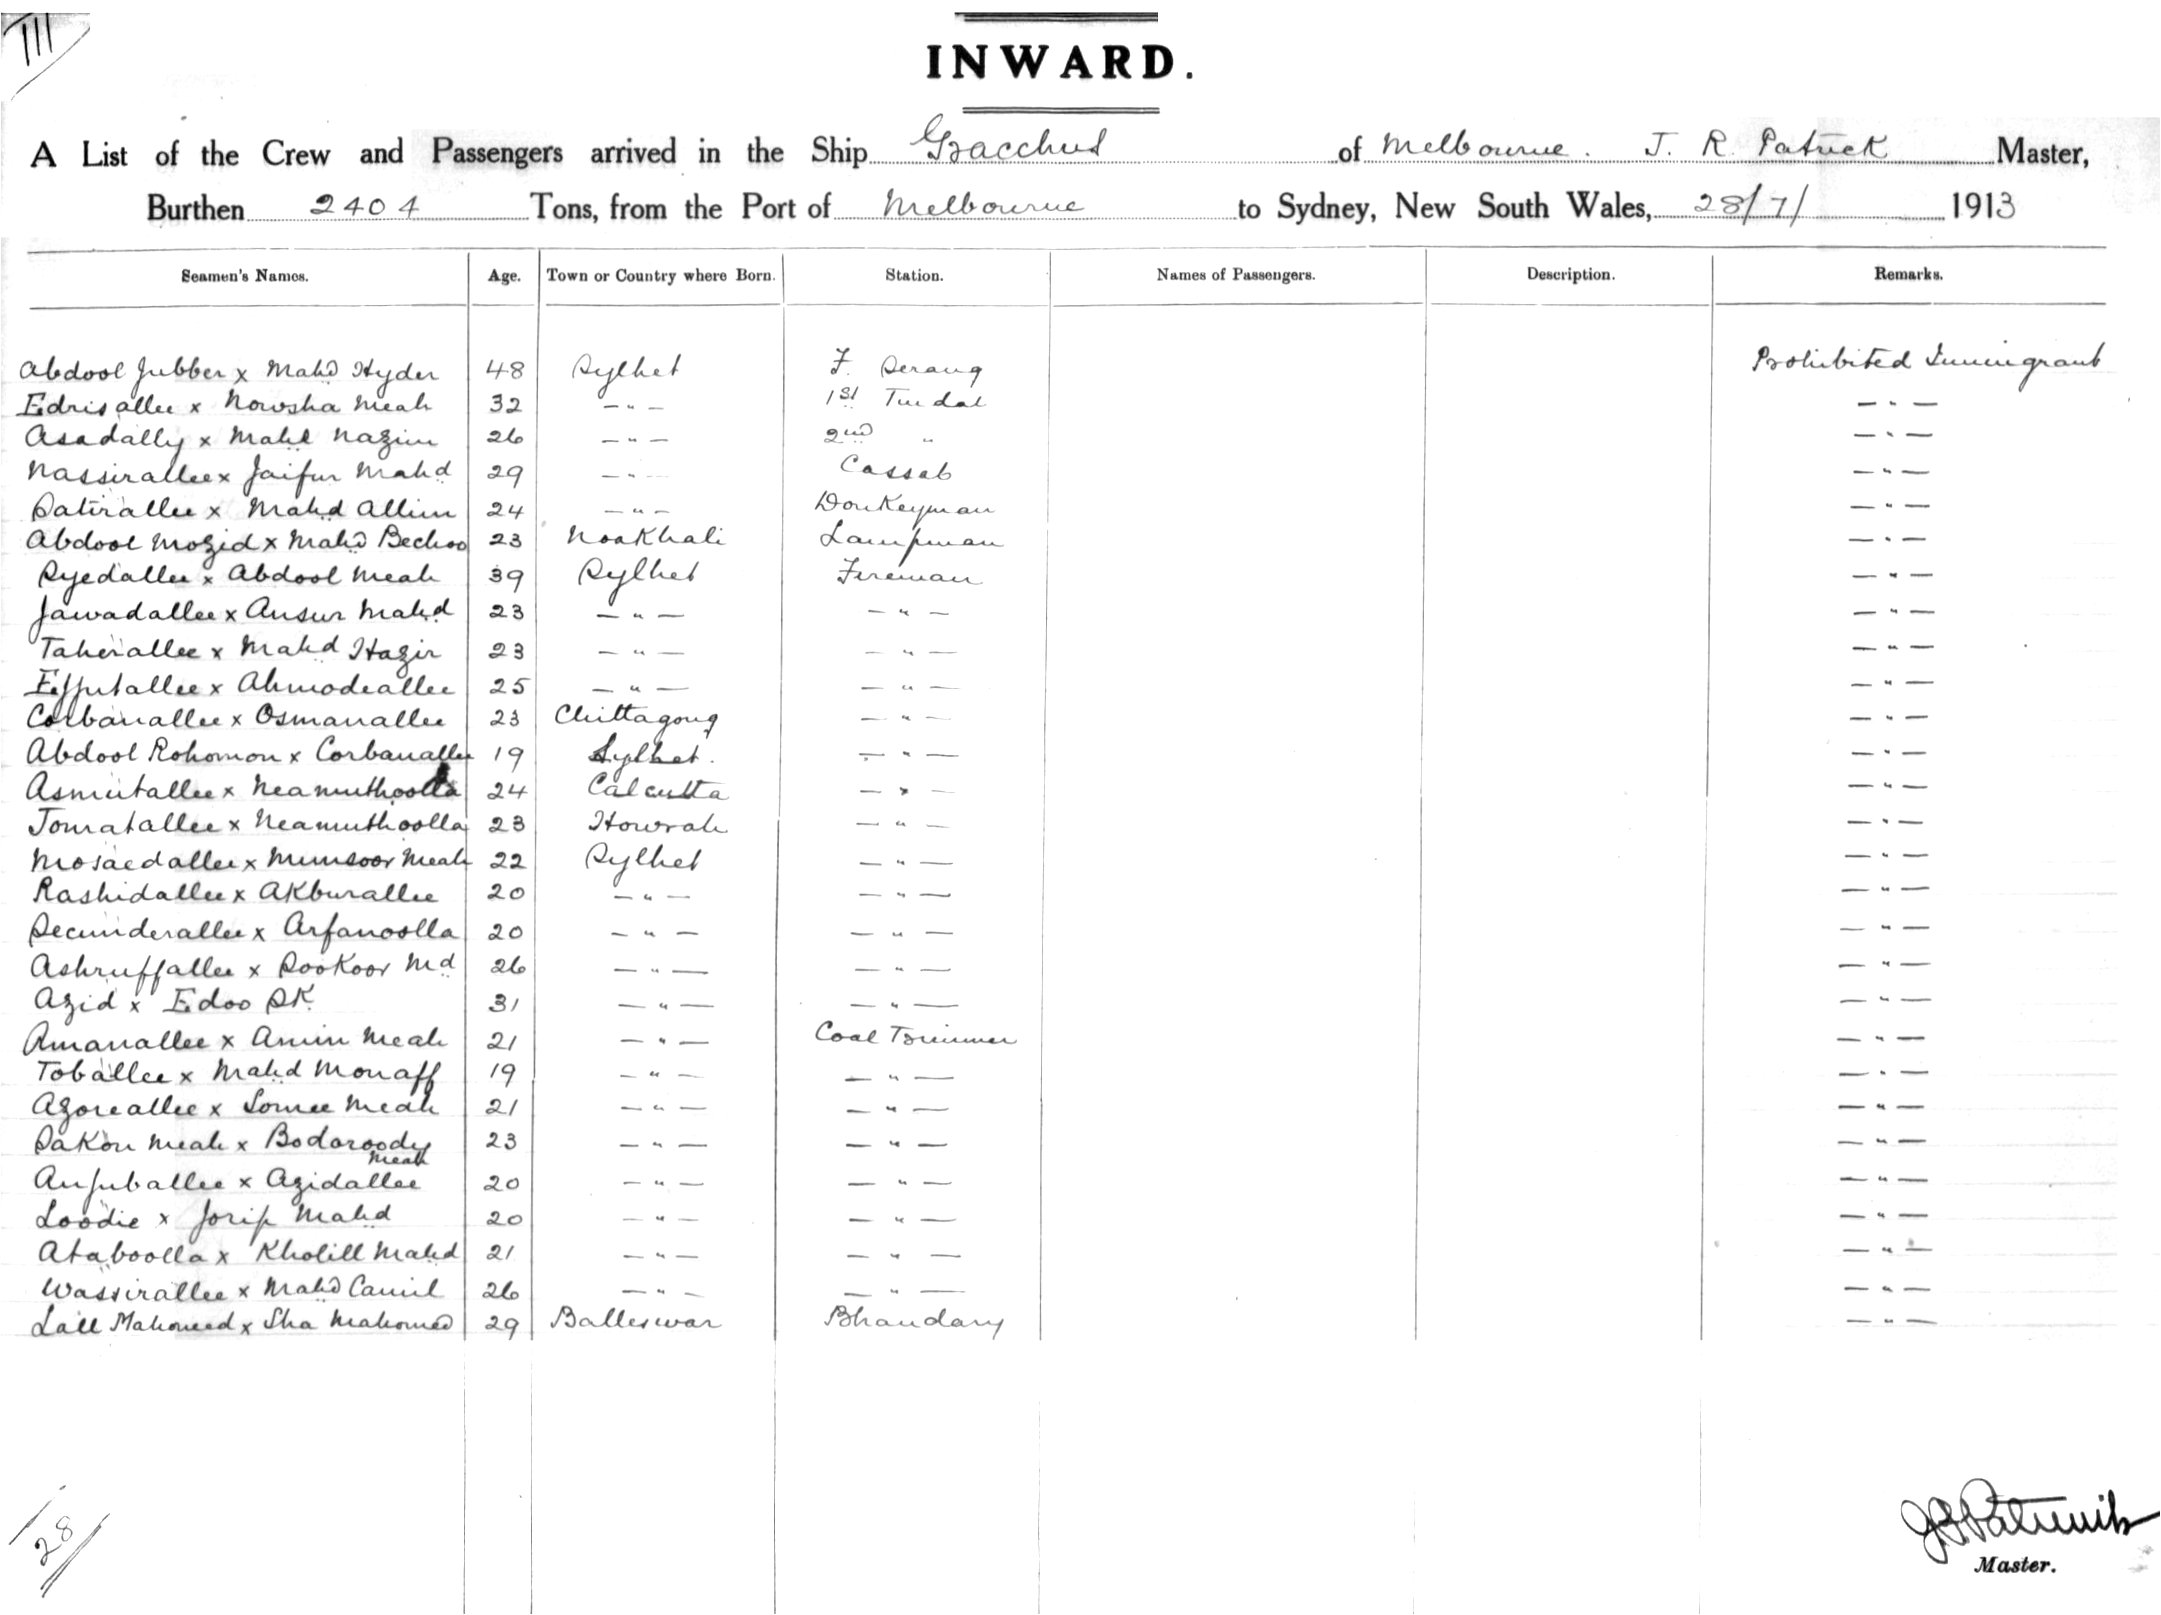 III
INWARD.
A List of the Crew and Passengers arrived in the Ship Gracchus of Melbourne. J. R. Patrick Master,
Burthen 2404 Tons, from the Port of Melbourne to Sydney, New South Wales, 28/7/ 1913
Seamen's Names. Age. Town or Country where Born. Station. Names of Passengers. Description. Remarks.
Abdool Jubber x Mahd Hyder 48 Sylhet F. Serang Prohibited Immigrant
Edrisallee x Nowsha Meah 32 — " — 1st Tindal — " —
Asadally x Mahd Nazim 26 — " — 2nd " — " —
Nassirallee x Jaifur Mahd 29 — " — Cassab — " —
Satirallee x Mahd Allim 24 — " — Donkeyman — " —
Abdool Mozid x Mahd Bechoo 23 Noakhali Lampman — " —
Syedallee x Abdool Meah 39 Sylhet Fireman — " —
Jawadallee x Ansur Mahd 23 — " — — " — — " —
Taherallee x Mahd Hazir 23 — " — — " — — " —
Effutallee x Ahmodeallee 25 — " — — " — — " —
Corbanallee x Osmanallee 23 Chittagong — " — — " —
Abdool Rohomon x Corbanallee 19 Sylhet. — " — — " —
Asmutallee x Neamuthoolla 24 Calcutta — " — — " —
Jomatallee x Neamuthoolla 23 Howrah — " — — " —
Mosaedallee x Munsoor Meah 22 Sylhet — " — — " —
Rashidallee x Akburallee 20 — " — — " — — " —
Secunderallee x Arfanoolla 20 — " — — " — — " —
Ashruffallee x Sookoor Md 26 — " — — " — — " —
Azid x Edoo SK. 31 — " — — " — — " —
Amanallee x Amin Meah 21 — " — Coal Trimmer — " —
Toballee x Mahd Monaff 19 — " — — " — — " —
Azoreallee x Somee Meah 21 — " — — " — — " —
Sakon Meah x Bodoroody Meah 23 — " — — " — — " —
Anjuballee x Azidallee 20 — " — — " — — " —
Loodie x Jorip Mahd 20 — " — — " — — " —
Ataboolla x Kholill Mahd 21 — " — — " — — " —
Wassirallee x Mahd Camil 26 — " — — " — — " —
Lall Mahomed x Sha Mahomed 29 Balleswar Bhandary — " —
28
J R Patrick
Master.